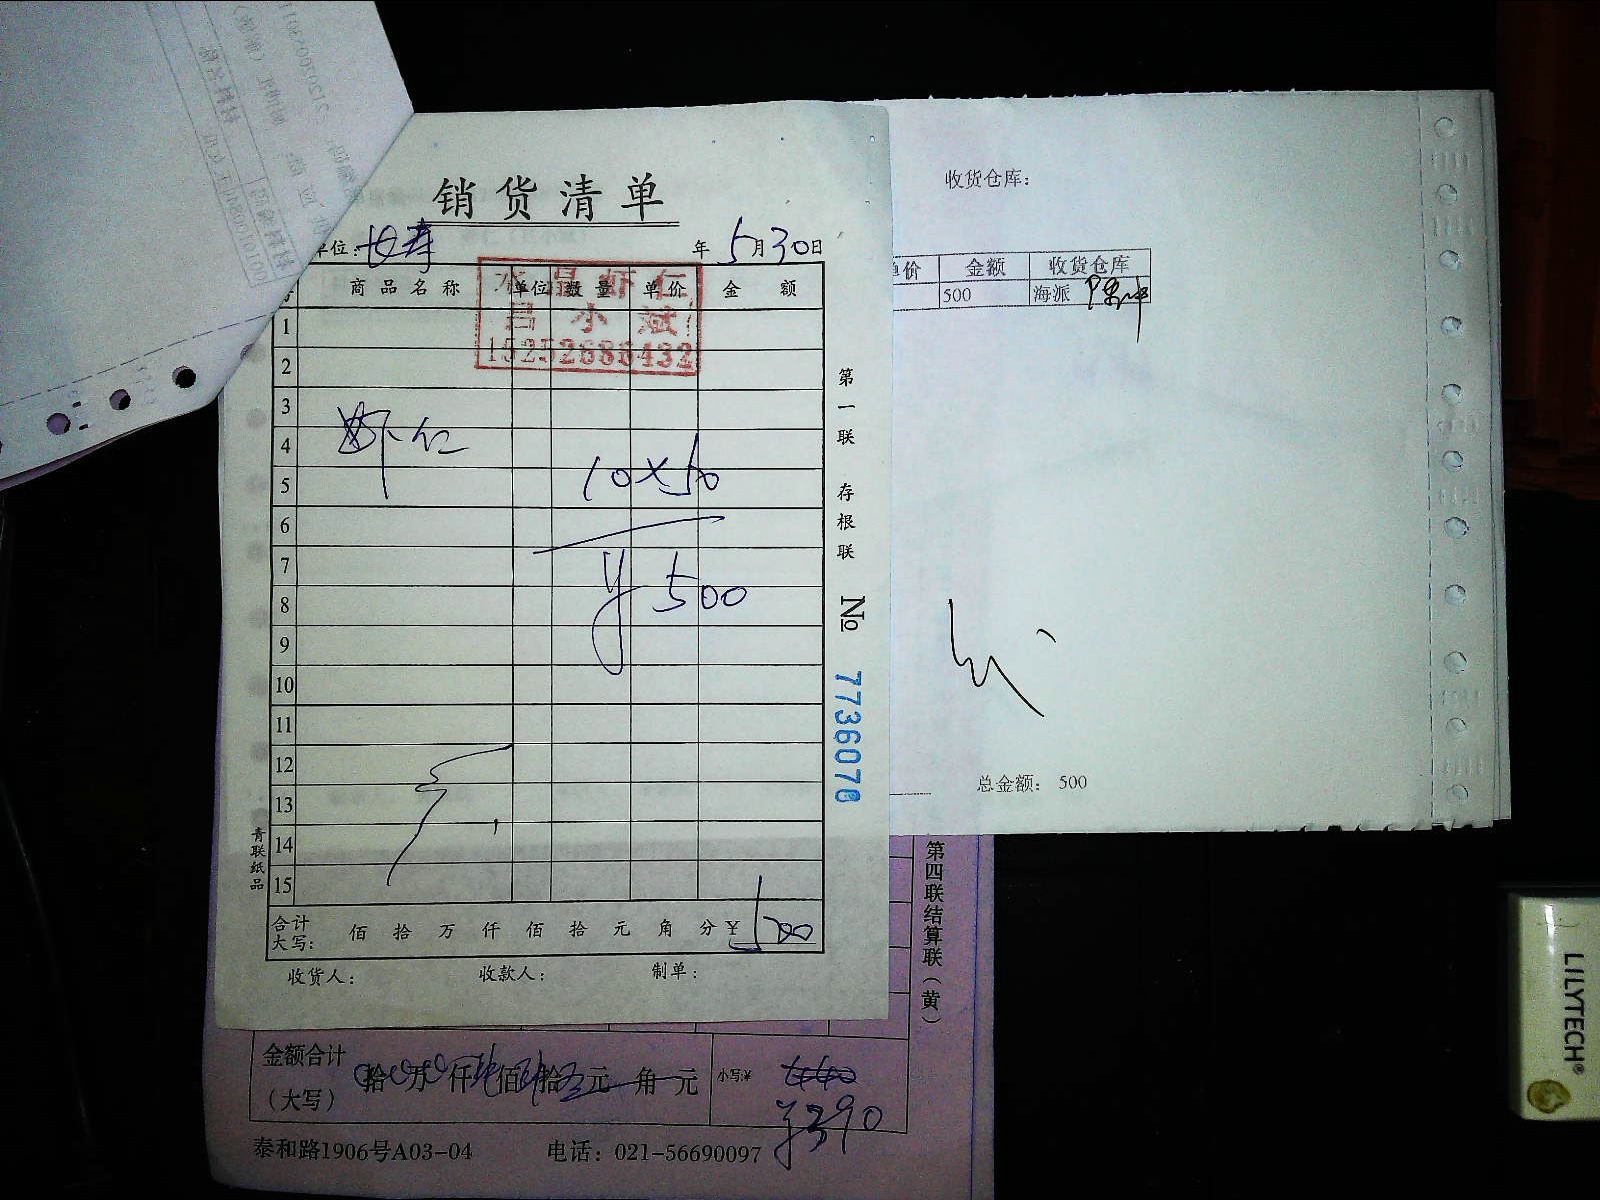 销货清单
单位: 长寿 年 5月30日
商品名称 单位 数量 单价 金额
水晶虾仁
吕小斌
15252686432
1
2
3
4
5
6
7
8
9
10
11
12
13
14
15
虾仁
10×50
¥500
合计
大写: 佰 拾 万 仟 佰 拾 元 角 分 ¥ 500
收货人: 收款人: 制单:
第一联 存根联 № 7736076
青联纸品
收货仓库:
单价 金额 收货仓库
500 海派
总金额: 500
第四联结算联(黄)
金额合计
(大写) 拾 万 仟 佰 拾 元 角 元 小写:¥
¥390
泰和路1906号A03-04 电话: 021-56690097
LILYTECH®